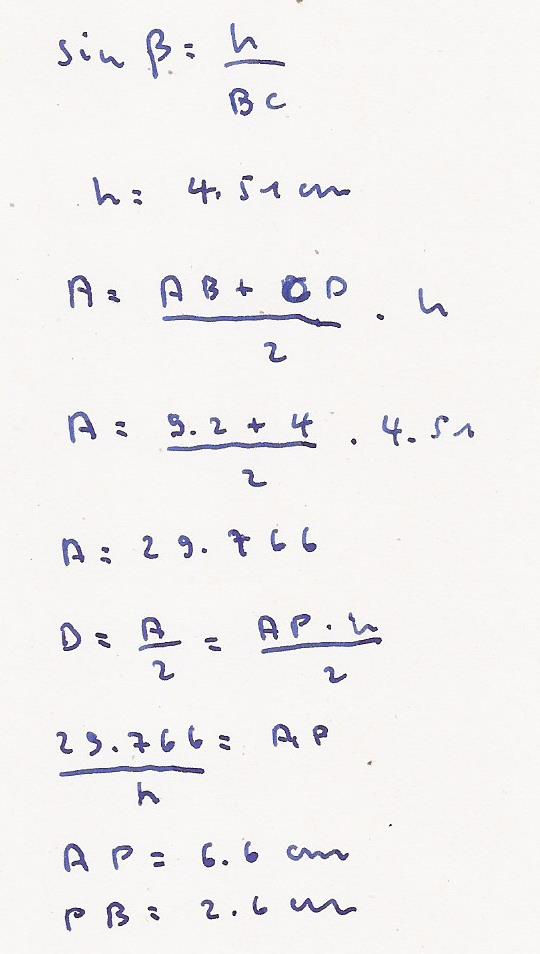 sin β = h / BC
h = 4.51 cm
A = (AB + CD) / 2 · h
A = (9.2 + 4) / 2 · 4.51
A = 29.766
D = A / 2 = AP · h / 2
29.766 / h = AP
AP = 6.6 cm
PB = 2.6 cm